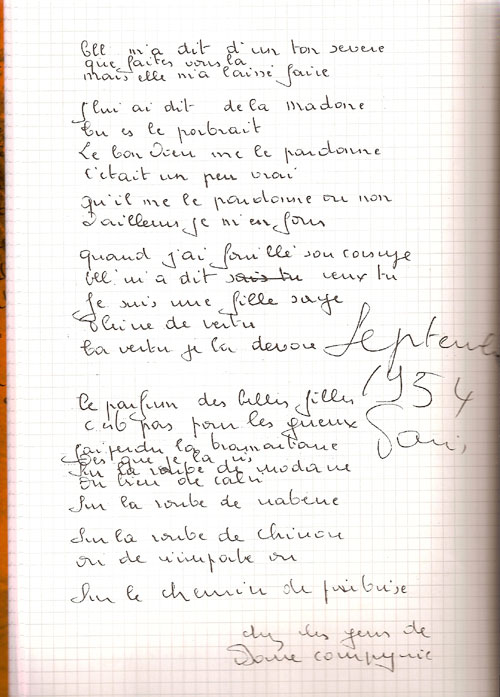 Elle m'a dit d'un ton severe
que faites vous la
mais elle m'a laissé faire
J'lui ai dit de la madone
tu es le portrait
Le bon Dieu me le pardonne
c'etait un peu vrai
qu'il me le pardonne ou non
D'ailleurs je m'en fous
quand j'ai fouillé son corsage
Elle m'a dit sais tu veux tu
Je suis une fille sage
Pleine de vertu
La vertu je la devore
Septembre
1954
Paris
le parfum des belles filles
c'est pas pour les gueux
j'ai perdu la tramontane
Des que je la vis
Sur la route de modane
ou bien de
Sur la route de
Sur la route de Chinon
ou de n'importe ou
Sur le chemin de
chez les gens de
Done compagnie